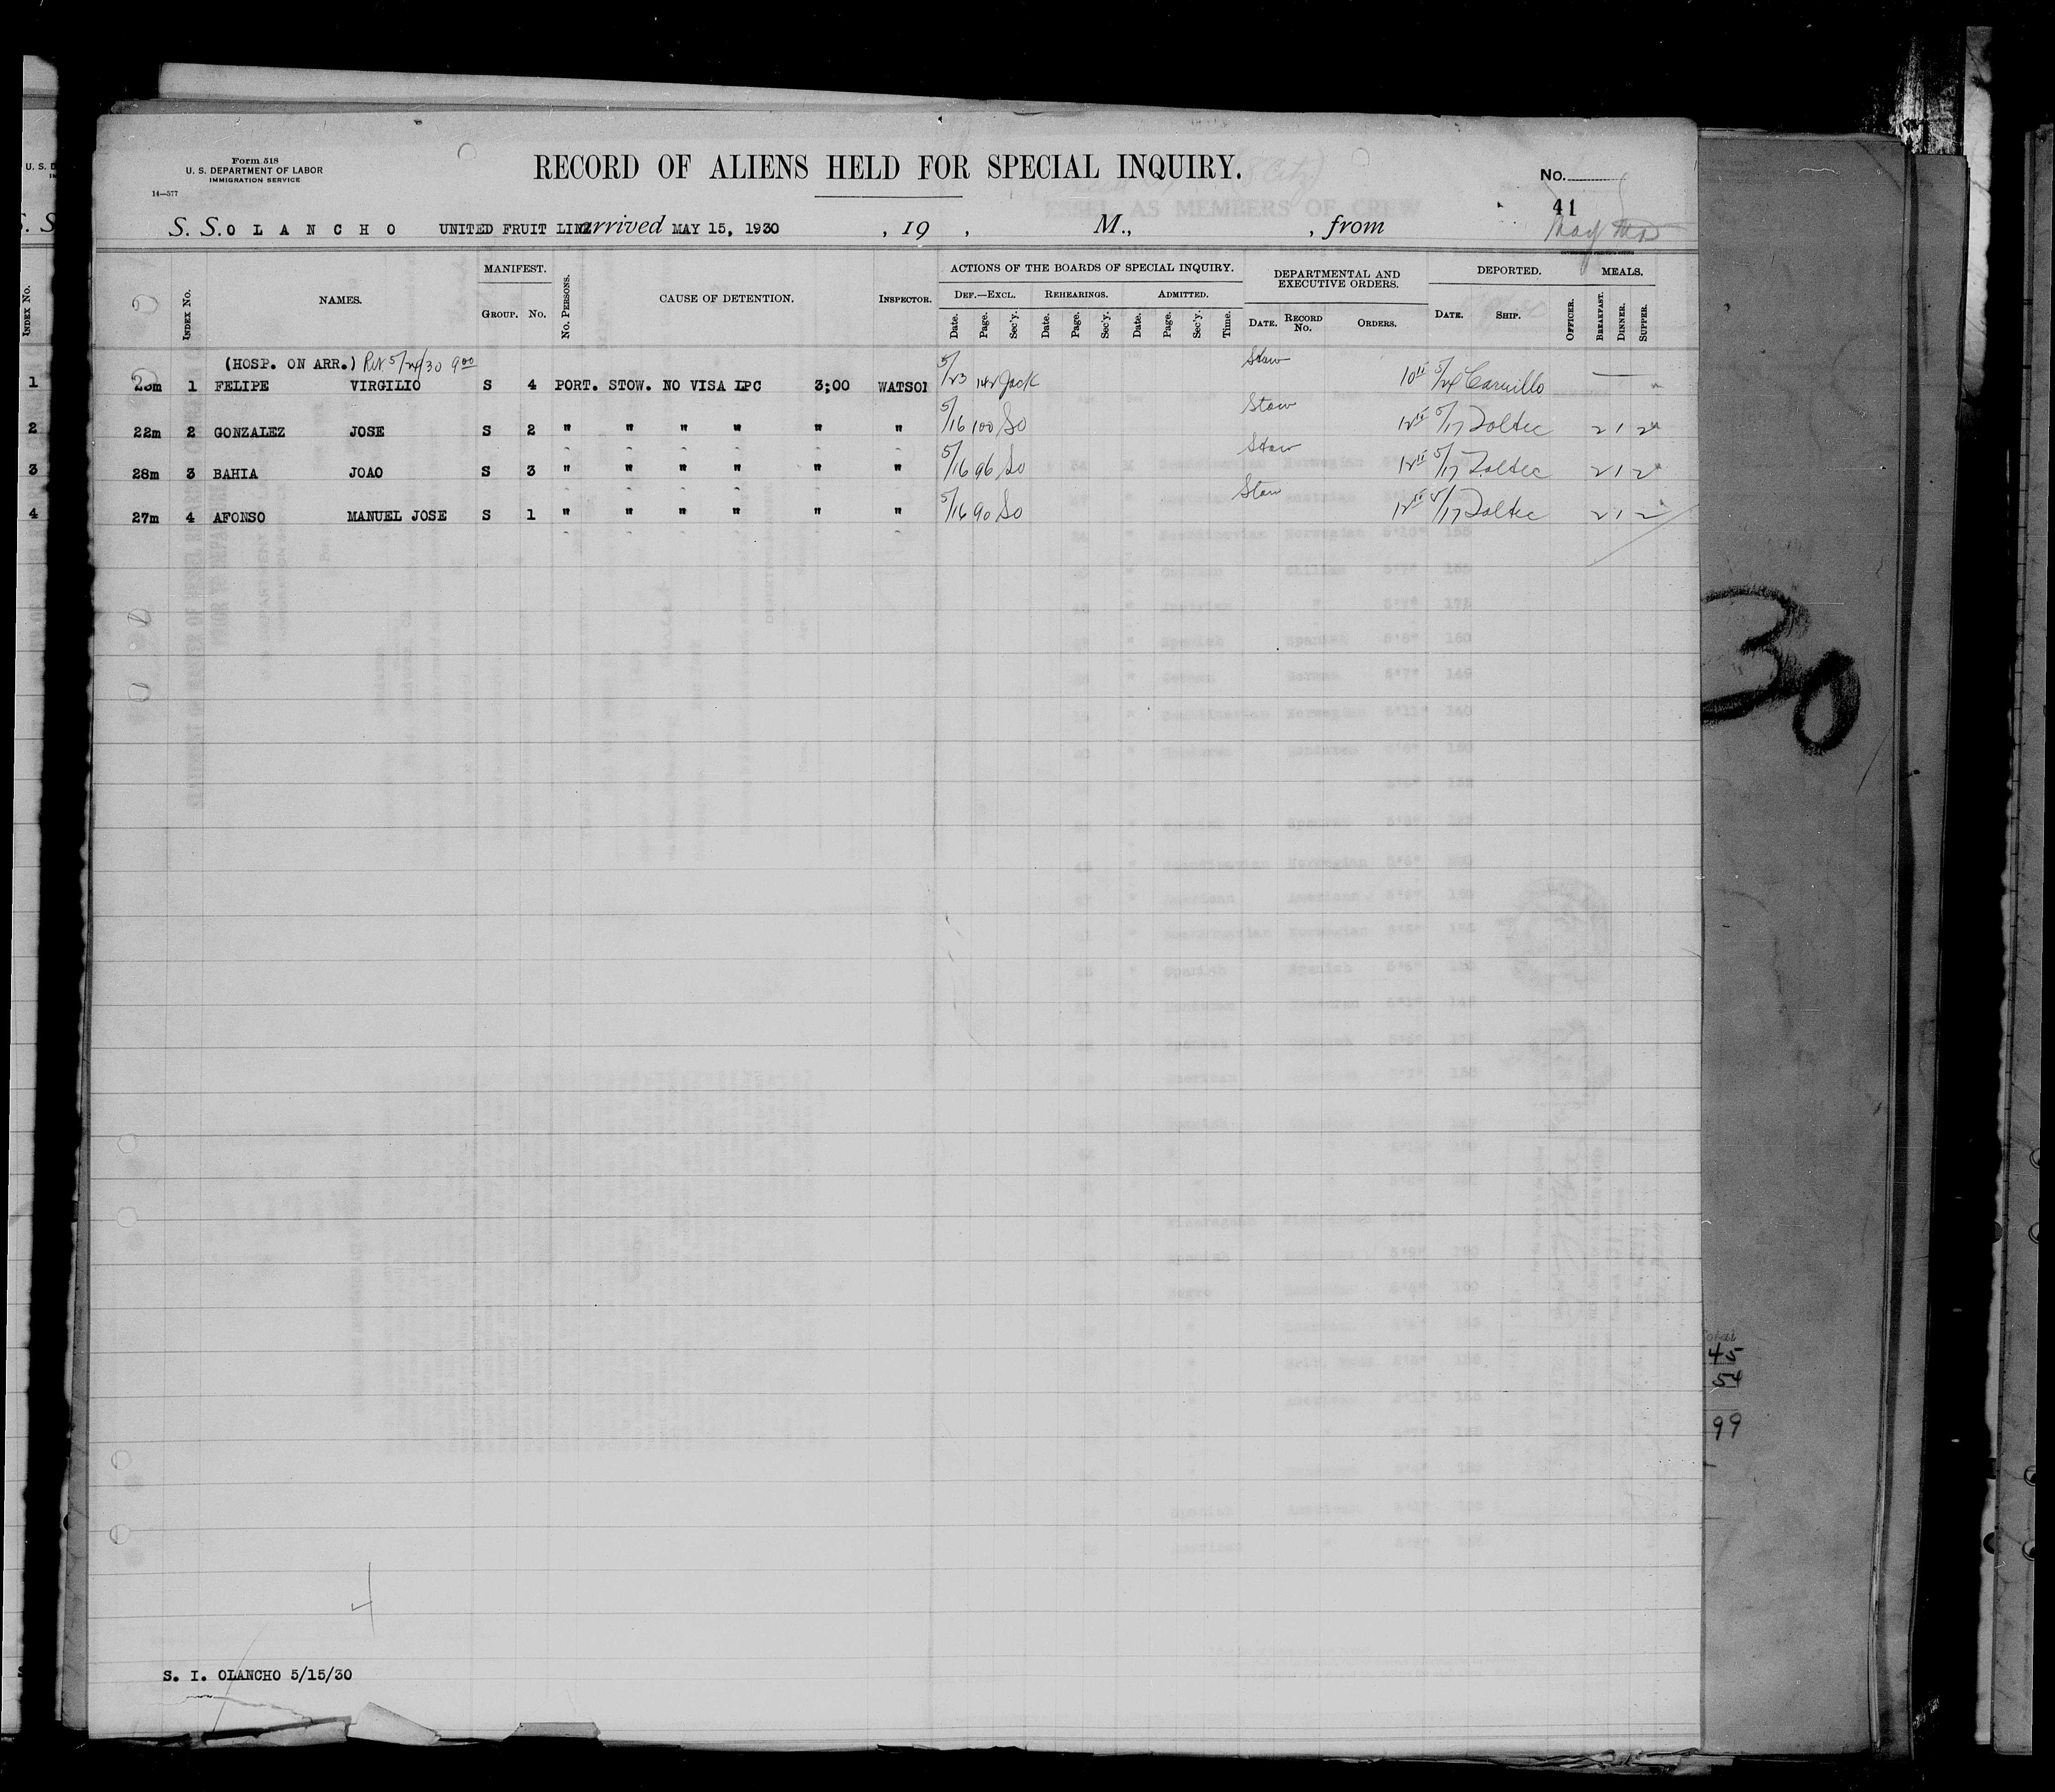 Form 518
U. S. DEPARTMENT OF LABOR
IMMIGRATION SERVICE
14—377
RECORD OF ALIENS HELD FOR SPECIAL INQUIRY.
No.
41
S. S. O L A N C H O UNITED FRUIT LINE arrived MAY 15, 1930 , 19 , M., , from
INDEX No. NAMES. MANIFEST. GROUP. No. No. PERSONS. CAUSE OF DETENTION. INSPECTOR. ACTIONS OF THE BOARDS OF SPECIAL INQUIRY. DEPARTMENTAL AND EXECUTIVE ORDERS. DEPORTED. MEALS.
DEF.—EXCL. REHEARINGS. ADMITTED.
Date. Page. Sec'y. Date. Page. Sec'y. Date. Page. Sec'y. Time. DATE. RECORD No. ORDERS. DATE. SHIP. OFFICER. BREAKFAST. DINNER. SUPPER.
(HOSP. ON ARR.) 5/24/30 900 Stow
1 FELIPE VIRGILIO S 4 PORT. STOW. NO VISA LPC 3;00 WATSON 5/23 142 Jack 5/24 Carrillo
22m 2 GONZALEZ JOSE S 2 " " " " " " 5/16 100 So Stow 5/17 Toltec 2 1 2
28m 3 BAHIA JOAO S 3 " " " " " " 5/16 96 So Stow 5/17 Toltec 2 1 2
27m 4 AFONSO MANUEL JOSE S 1 " " " " " " 5/16 90 So Stow 5/17 Toltec 2 1 2
4
S. I. OLANCHO 5/15/30
INDEX No.
1
2
3
4
30
Total
45
54
99